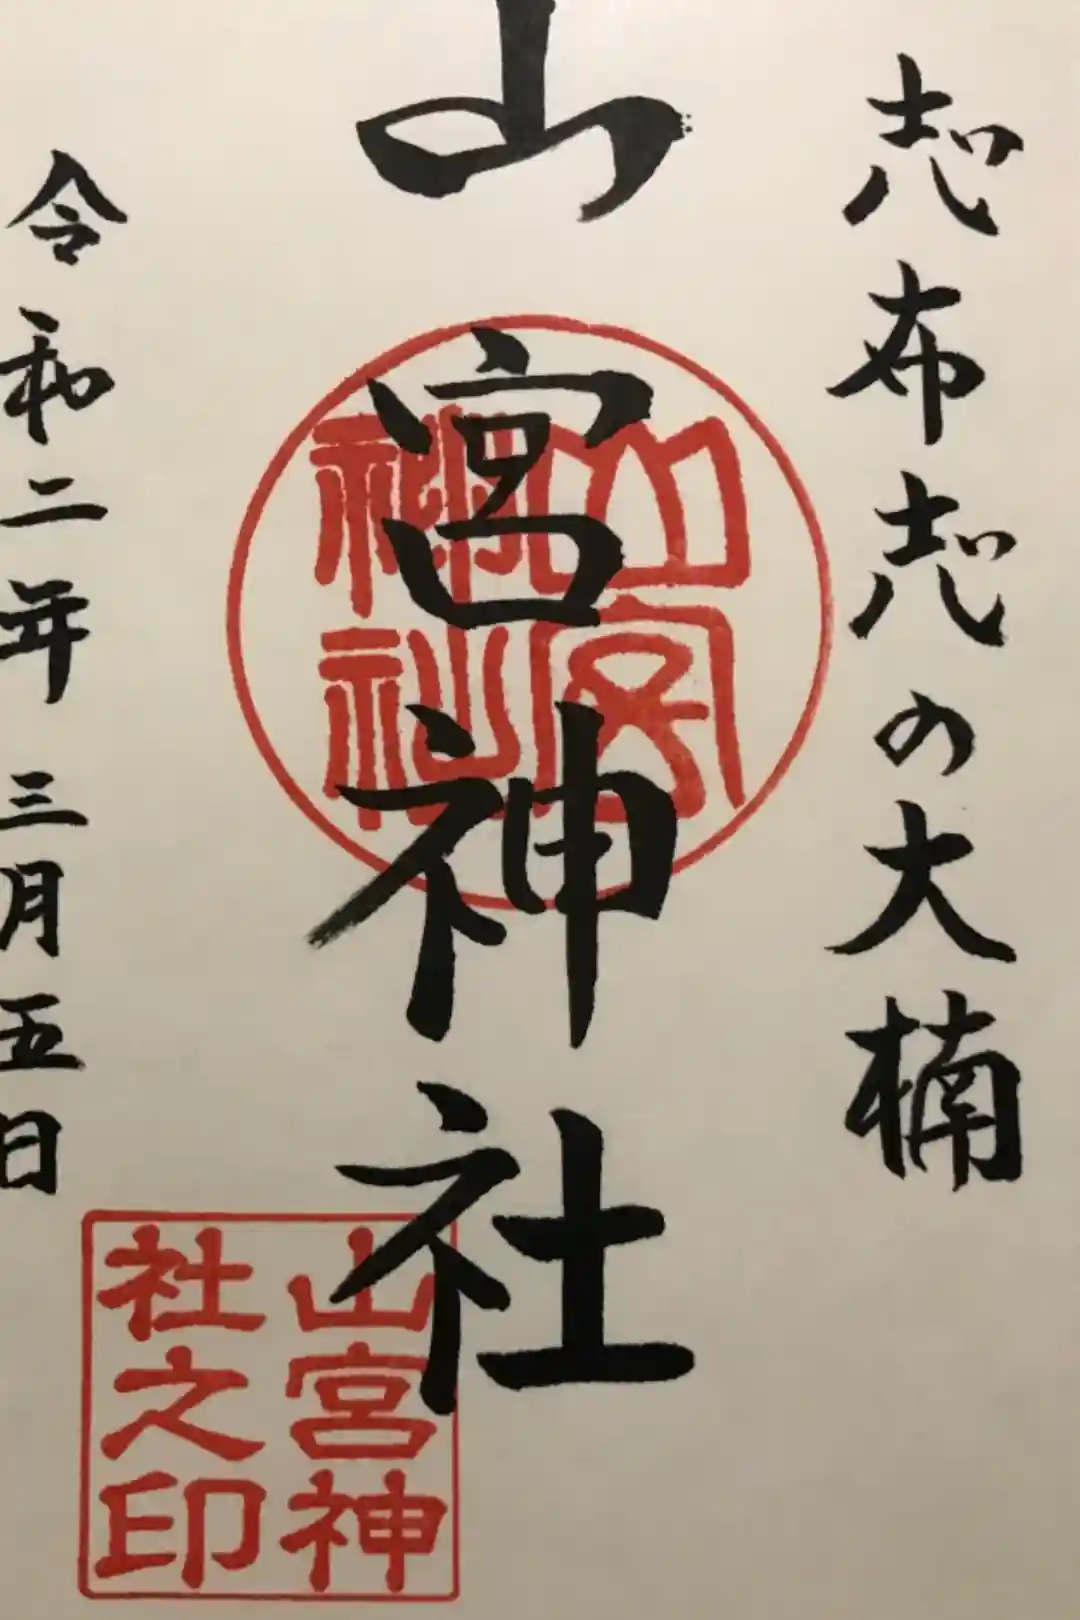 志布志の大楠
山宮神社
令和二年三月五日
山宮神
社之印